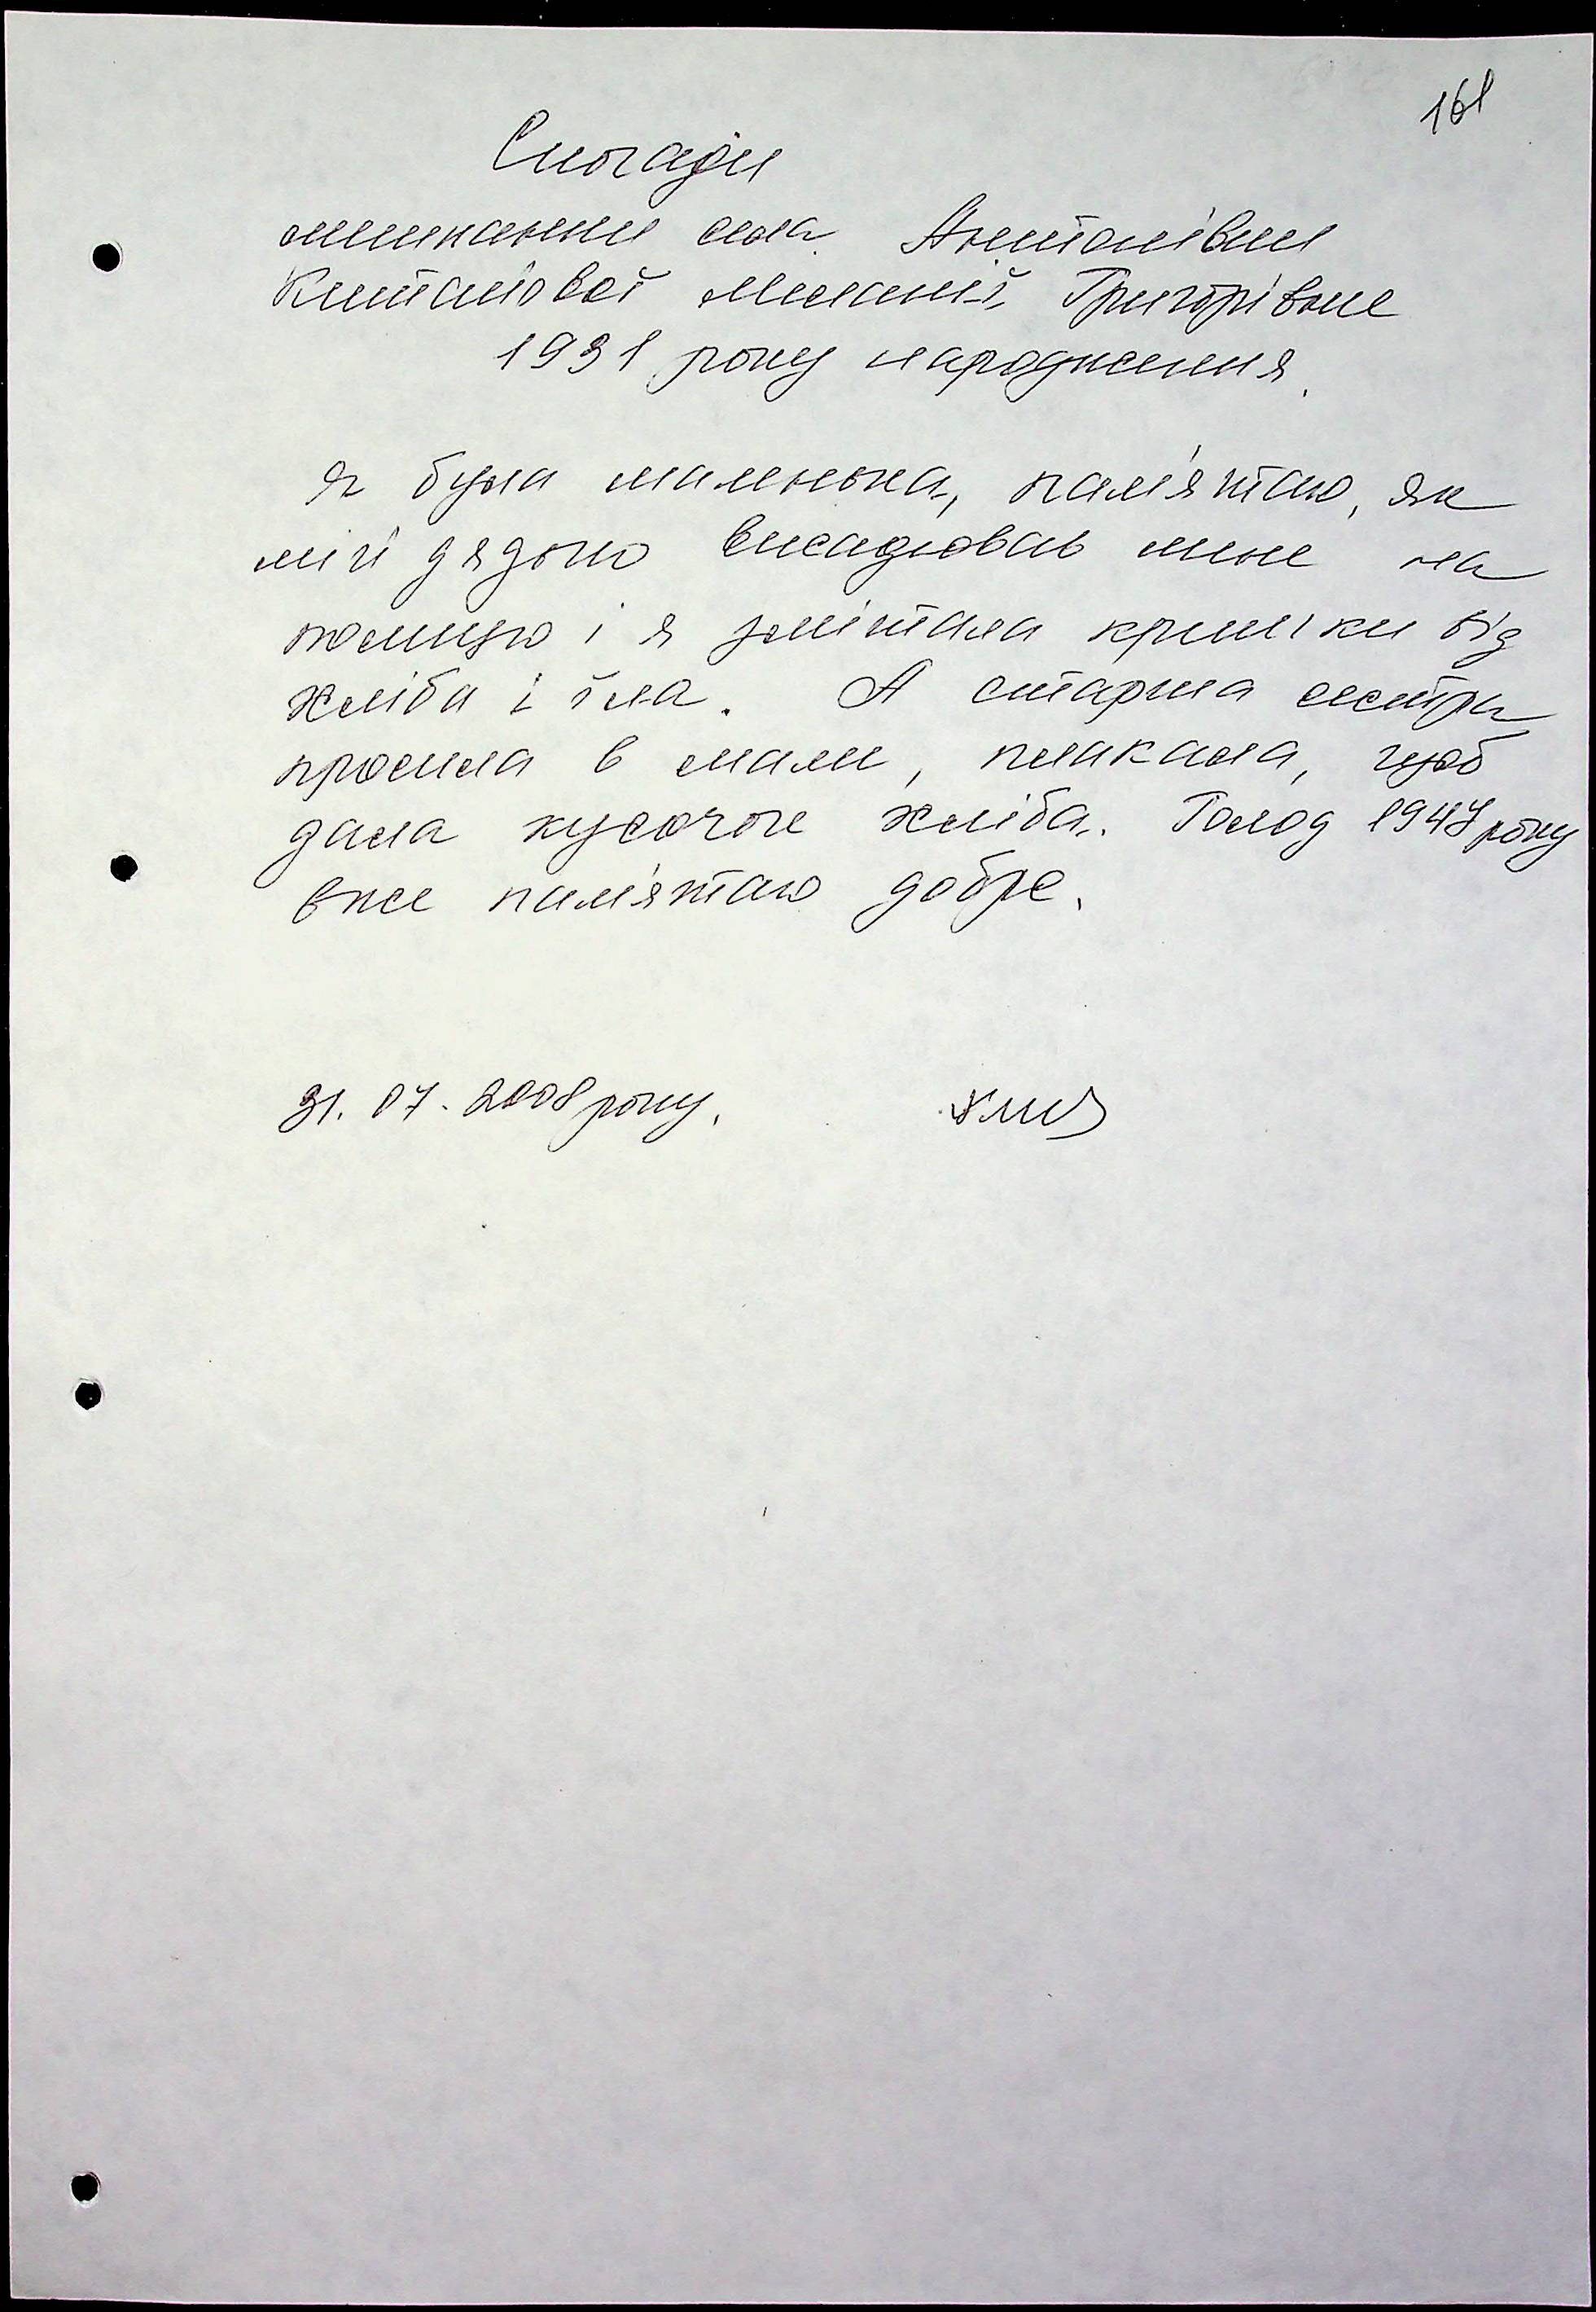 161
Спогади
мешканки села Антонівки
Китайової Меланії Григорівне
1931 року народження.
Я була маленька, пам'ятаю, як
мій дядько висаджував мене на
полицю і я змітала кришки від
хліба і їла. А старша сестра
просила в мами, плакала, щоб
дала кусочок хліба. Голод 1947 року
вже пам'ятаю добре.
31.07.2008 року.